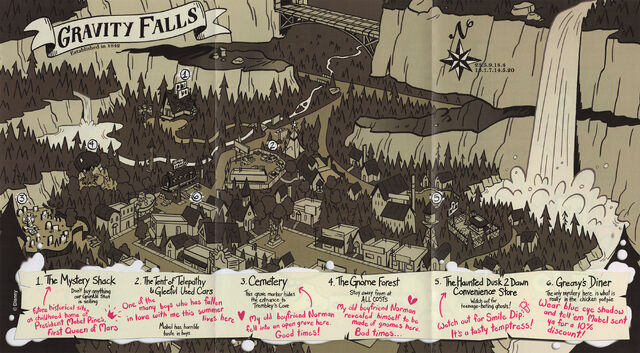 GRAVITY FALLS
Established in 1842
N
23.5.9.18.4
13.1.7.14.5.20
1
2
3
4
5
1. The Mystery Shack
Don't buy anything
our Grunkle Stan
is selling
Future historical site,
as childhood home of
President Mabel Pines,
First Queen of Mars
2. The Tent of Telepathy
& Gleeful Used Cars
One of the
many boys who has fallen
in love with me this summer
lives here
Mabel has horrible
taste in boys
3. Cemetery
This grave marker hides
the entrance to
Trembley's Cove
My old boyfriend Norman
fell into an open grave here.
Good times!
4. The Gnome Forest
Stay away from at
ALL COSTS
My old boyfriend Norman
revealed himself to be
made of gnomes here.
Bad times...
5. The Haunted Dusk 2 Dawn
Convenience Store
Watch out for
teenage-hating ghosts!
Watch out for Smile Dip.
It's a tasty temptress!
6. Greasy's Diner
The only mystery here, is what is
really in the chicken potpie
Wear blue eye shadow
and tell 'em Mabel sent
ya for a 10%
discount!
© Disney